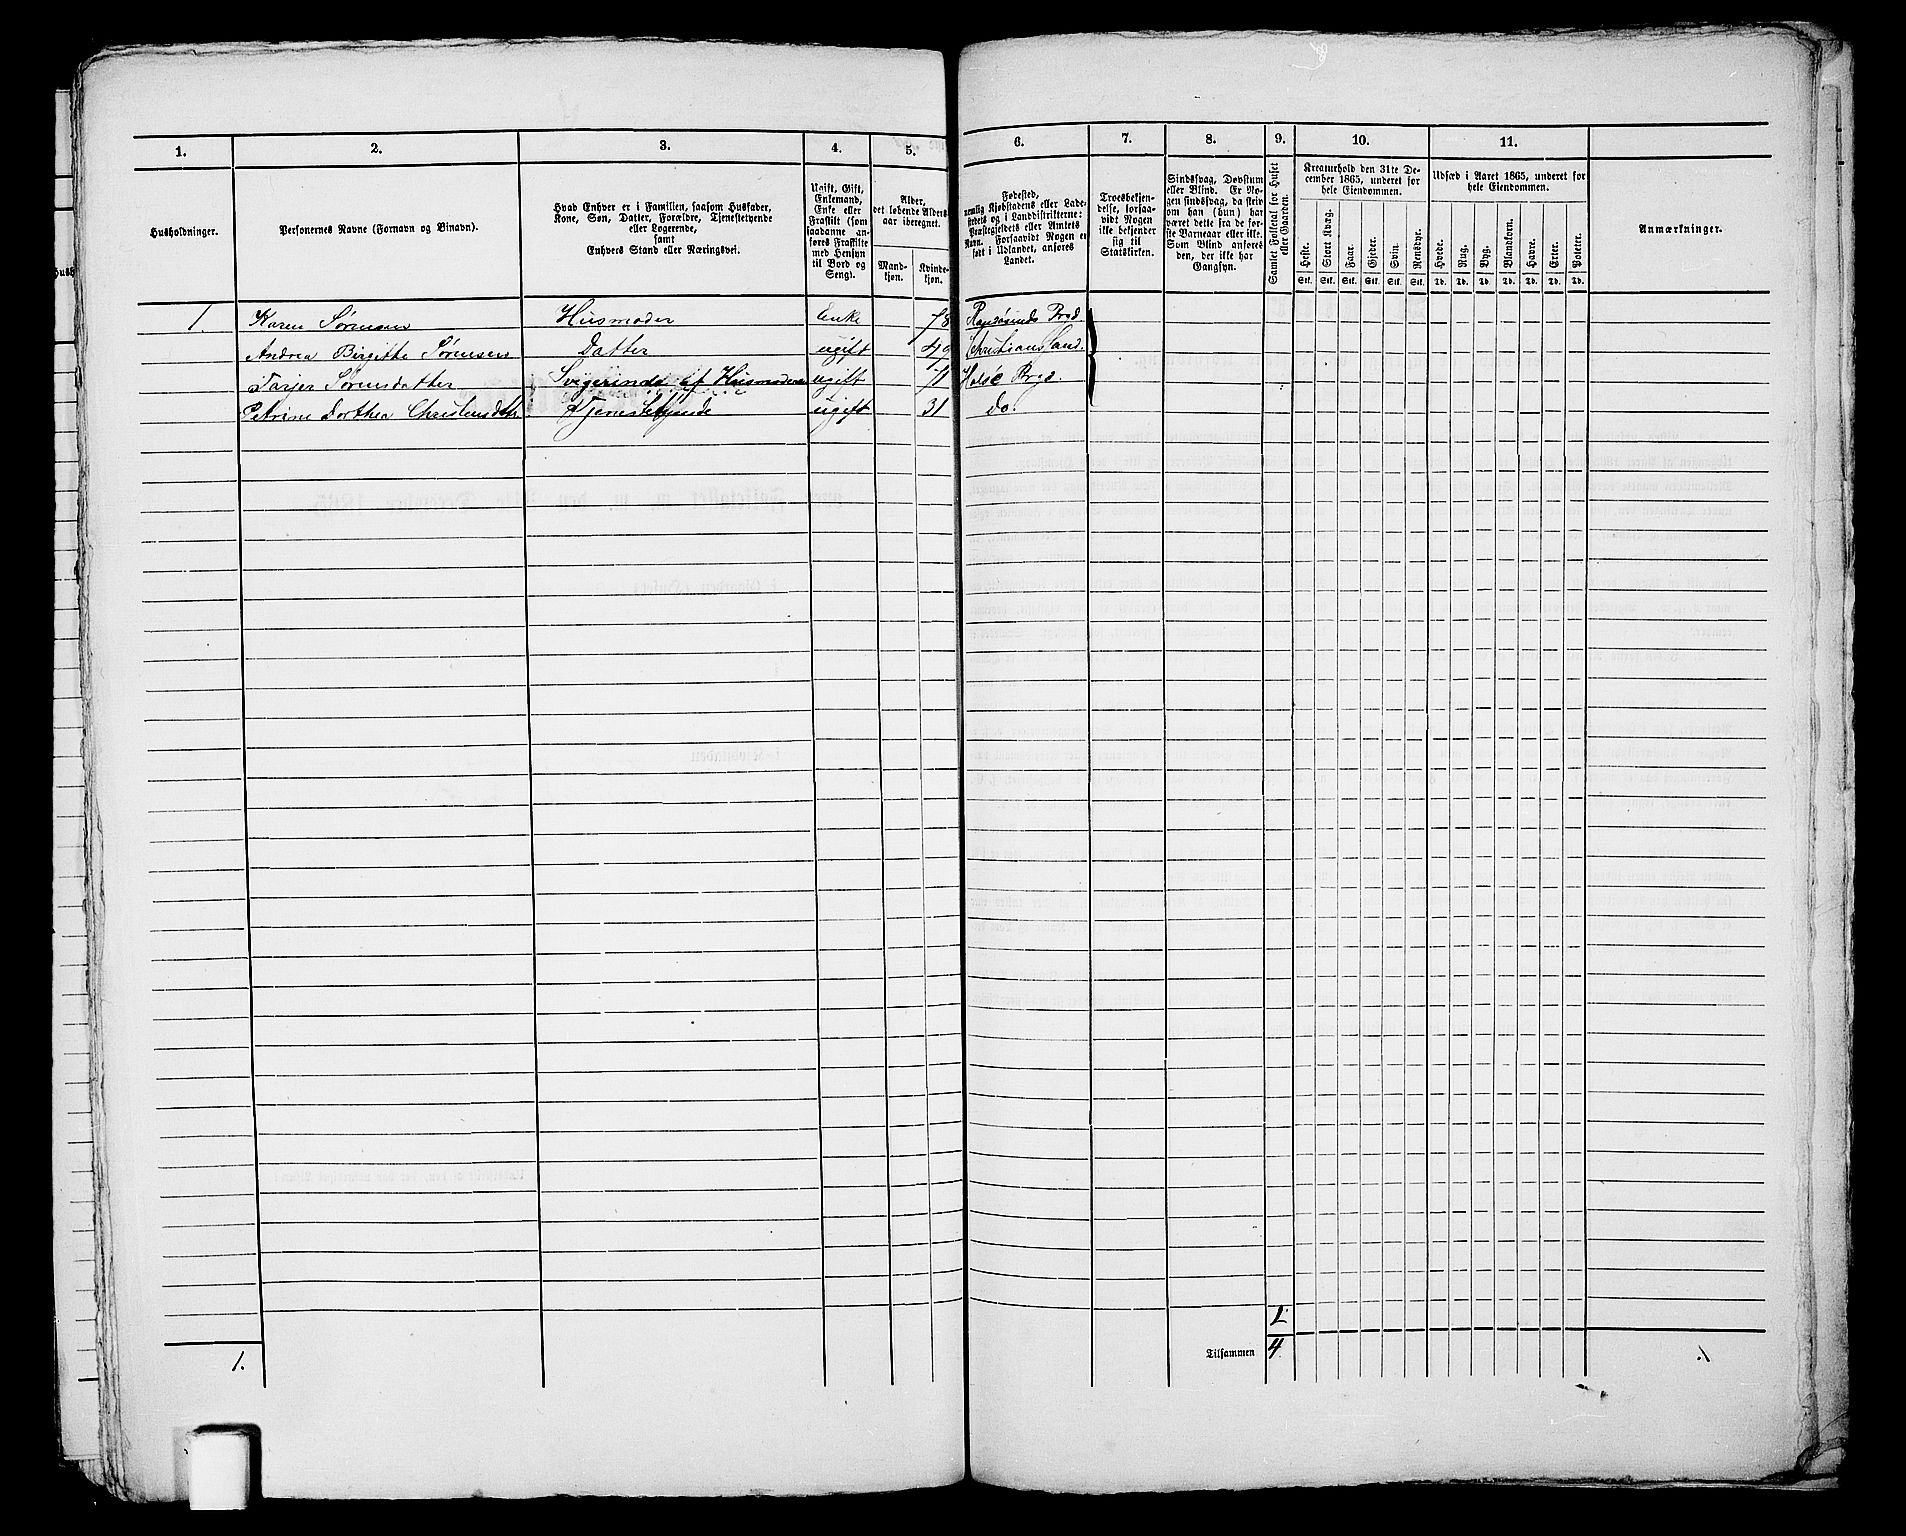 1. 2. 3. 4. 5. 6. 7. 8. 9. 10. 11.
Husholdninger.
Personernes Navne (Fornavn og Binavn).
Hvad Enhver er i Familien, saasom Husfader,
Kone, Søn, Datter, Forældre, Tjenestetyende
eller Logerende,
samt
Enhvers Stand eller Næringsvei.
Ugift, Gift,
Enkemand,
Enke eller
Fraskilt (som
saadanne an-
føres Fraskilte
med Hensyn
til Bord og
Seng).
Alder,
det løbende Alders-
aar iberegnet.
Mand-
kjøn.
Kvinde-
kjøn.
Fødested,
nemlig Kjøbstadens eller Lade-
stedets og i Landdistrikterne:
Præstegjeldets eller Amtets
Navn. Forsaavidt Nogen er
født i Udlandet, anføres
Landet.
Troesbekjen-
delse, forsaa-
vidt Nogen
ikke bekjender
sig til
Statskirken.
Sindssvag, Døvstum
eller Blind. Er No-
gen sindssvag, da skriv
om han (hun) har
været dette fra de før-
ste Barneaar eller ikke.
Som Blind anføres
den, der ikke har
Gangsyn.
Samlet Folketal for Huset
eller Gaarden.
Kreaturhold den 31te De-
cember 1865, underet for
hele Eiendommen.
Heste. Stort Kvæg. Faar. Gjeder. Svin. Rensdyr.
Stk. Stk. Stk. Stk. Stk. Stk.
Udsæd i Aaret 1865, underet for
hele Eiendommen.
Hvede. Rug. Byg. Blandkorn. Havre. Erter. Poteter.
Td. Td. Td. Td. Td. Td. Td.
Anmærkninger.
1. Karen Sørensen Husmoder Enke 78
Andrea Birgitte Sørensen Datter ugift 49 Christianssand.
Tarjer Sørensdatter Svigerinde af Husmoderen ugift 71 Halsø Prgd.
Petrine Dorthea Christensdtr. Tjenestetyende ugift 31 Do.
1.
Tilsammen 4